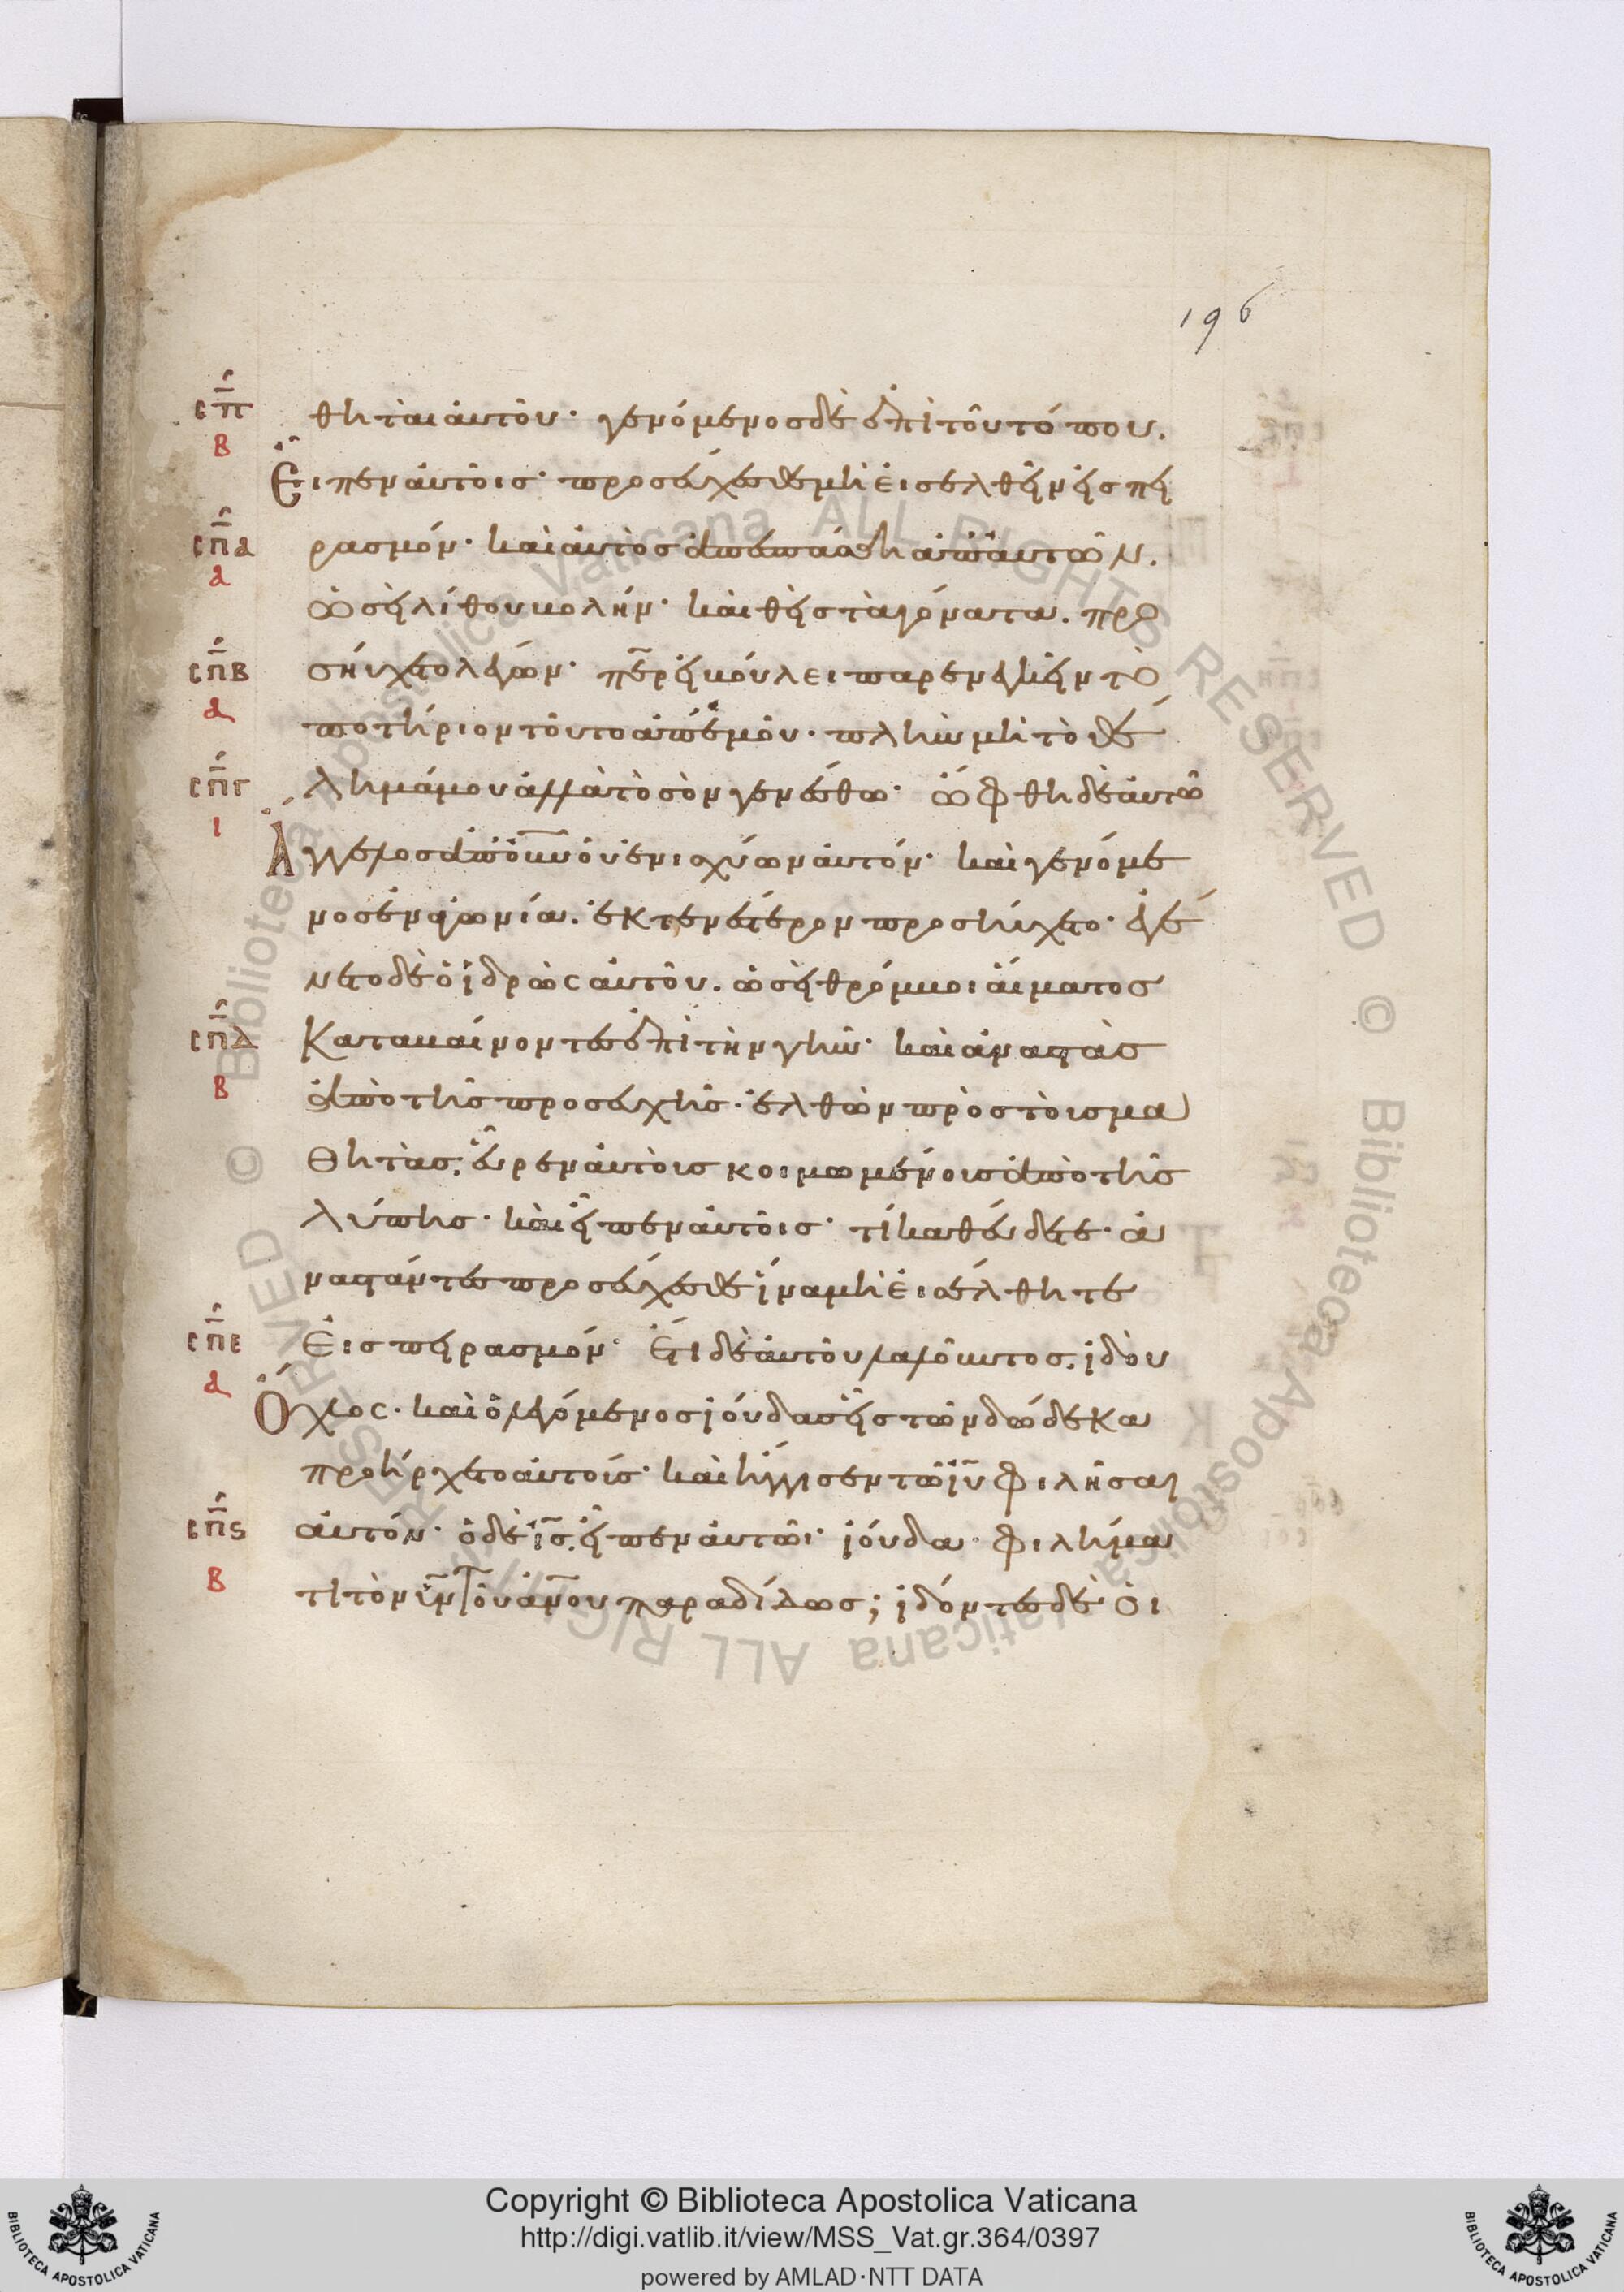 196
σπ
β
θηται αυτοῦ· γενόμενος δὲ ἐπὶ τοῦ τόπου.
Εἶπεν αὐτοῖς· προσεύχεσθε μὴ εἰσελθεῖν εἰς πει
σπα
α
ρασμόν· καὶ αὐτὸς ἀπεσπάσθη ἀπ' αὐτῶν.
ὡσεὶ λίθου βολήν· καὶ θεὶς τὰ γόνατα. προ
σπβ
α
σηύχετο λέγων· περ εἰ βούλει παρενεγκεῖν τὸ
ποτήριον τοῦτο ἀπ' ἐμοῦ· πλὴν μὴ τὸ θέ
σπγ
ι
λημά μου ἀλλὰ τὸ σὸν γενέσθω· ὤφθη δὲ αὐτῶ
Ἄγγελος ἀπ' οὐνοῦ ἐνισχύων αὐτόν· καὶ γενόμε
νος ἐν ἀγωνία. ἐκτενέστερον προσηύχετο· ἐγέ
νετο δὲ ὁ ἱδρὼς αὐτοῦ. ὡσεὶ θρόμβοι αἵματος
σπδ
β
Καταβαίνοντες ἐπὶ τὴν γῆν· καὶ ἀναστὰς
ἀπὸ τῆς προσευχῆς. ἐλθὼν πρὸς τοὺς μα
θητὰς, εὗρεν αὐτοὺς κοιμωμένους ἀπὸ τῆς
λύπης· καὶ εἶπεν αὐτοῖς· τί καθεύδετε· ἀ
ναστάντες προσεύχεσθε ἵνα μὴ εἰσέλθητε
σπε
α
Εἰς πειρασμόν· Ἔτι δὲ αὐτοῦ λαλοῦντος. ἰδοὺ
Ὄχλος· καὶ ὁ λεγόμενος ἰούδας εἷς τῶν δώδεκα
προήρχετο αὐτούς· καὶ ἤγγισεν τῶ ιυ φιλῆσαι
σπς
β
αὐτόν· ὁ δὲ ις, εἶπεν αὐτῶ· ἰούδα· φιλήμα
τι τὸν υν τοῦ ανου παραδίδως; ἰδόντες δὲ οἱ
Copyright © Biblioteca Apostolica Vaticana
http://digi.vatlib.it/view/MSS_Vat.gr.364/0397
powered by AMLAD·NTT DATA
BIBLIOTECA APOSTOLICA VATICANA
BIBLIOTECA APOSTOLICA VATICANA
Biblioteca Apostolica Vaticana ALL RIGHTS RESERVED © Biblioteca Apostolica Vaticana ALL RIGHTS RESERVED ©